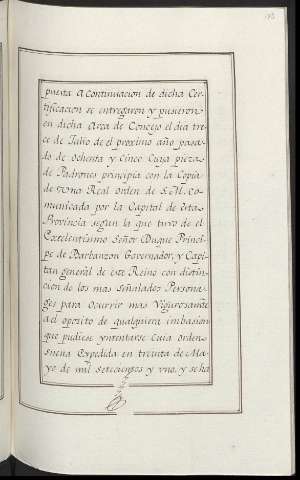 puesta a Continuacion de dicha Cer-
tificacion se entregaron y pusieron
en dicha Arca de Concejo el dia tre-
ce de Julio de el proximo año pasa-
do de ochenta y Cinco Cuia pieza
de Padrones principia con la Copia
de vna Real orden de S. M. co-
municada por la Capital de esta
Provincia segun la que tuvo de el
Excelentisimo Señor Duque Princi-
pe de Barbanzon Governador, y Capi-
tan general de este Reino con distin-
cion de los mas señalados Persona-
ges para Ocurrir mas Vigurosante
a el oposito de qualquiera imbasion
que pudiese yntentarse Cuia orden
suena Expedida en treinta de Ma-
yo de mil setecientos y vno, y se ha